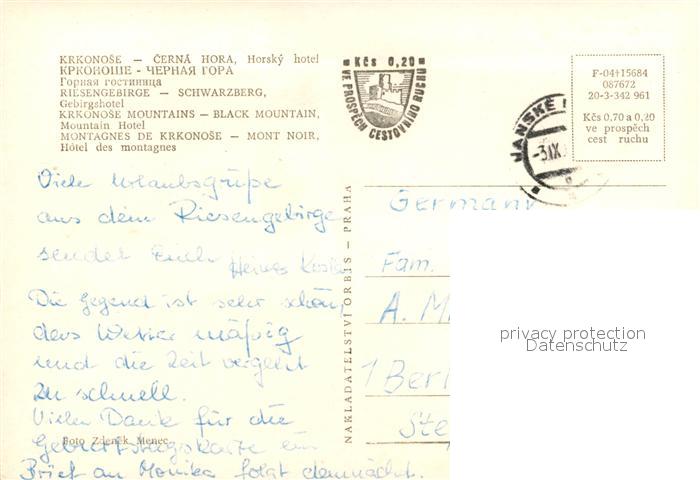 KRKONOŠE - ČERNÁ HORA, Horský hotel
КРКОНОШЕ - ЧЕРНАЯ ГОРА
Горная гостиница
RIESENGEBIRGE — SCHWARZBERG,
Gebirgshotel
KRKONOŠE MOUNTAINS — BLACK MOUNTAIN,
Mountain Hotel
MONTAGNES DE KRKONOŠE — MONT NOIR,
Hôtel des montagnes
Kčs 0,20
VE PROSPĚCH CESTOVNÍHO RUCHU
F-04†15684
087672
20-3-342 961
Kčs 0.70 a 0,20
ve prospěch
cest ruchu
JANSKÉ
-3.IX.
Viele Urlaubsgrüße
aus dem Riesengebirge
sendet Euch
Die Gegend ist sehr schön,
das Wetter mäßig
und die Zeit vergeht
zu schnell.
Vielen Dank für die
Geburtstagskarte ein
Brief an Monika folgt demnächst.
Foto Zdeněk Menec
NAKLADATELSTVÍ ORBIS — PRAHA
Germany
Fam.
A. M
1 Berl
Ste
privacy protection
Datenschutz